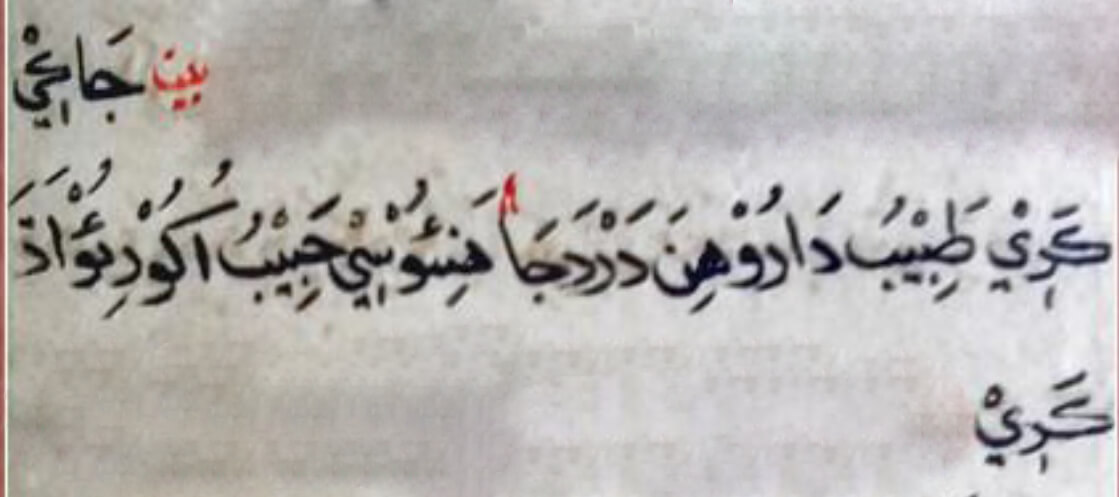 بيت جَاکِيْ
كَرِيْ طَبِيْبُ دَارُوْ هِنَ دَرْدَ جَا هَنِئُوْ سِيْ حَبِيْبُ اُكُوْرِئُوْ اَدَّ
كَرِيْ